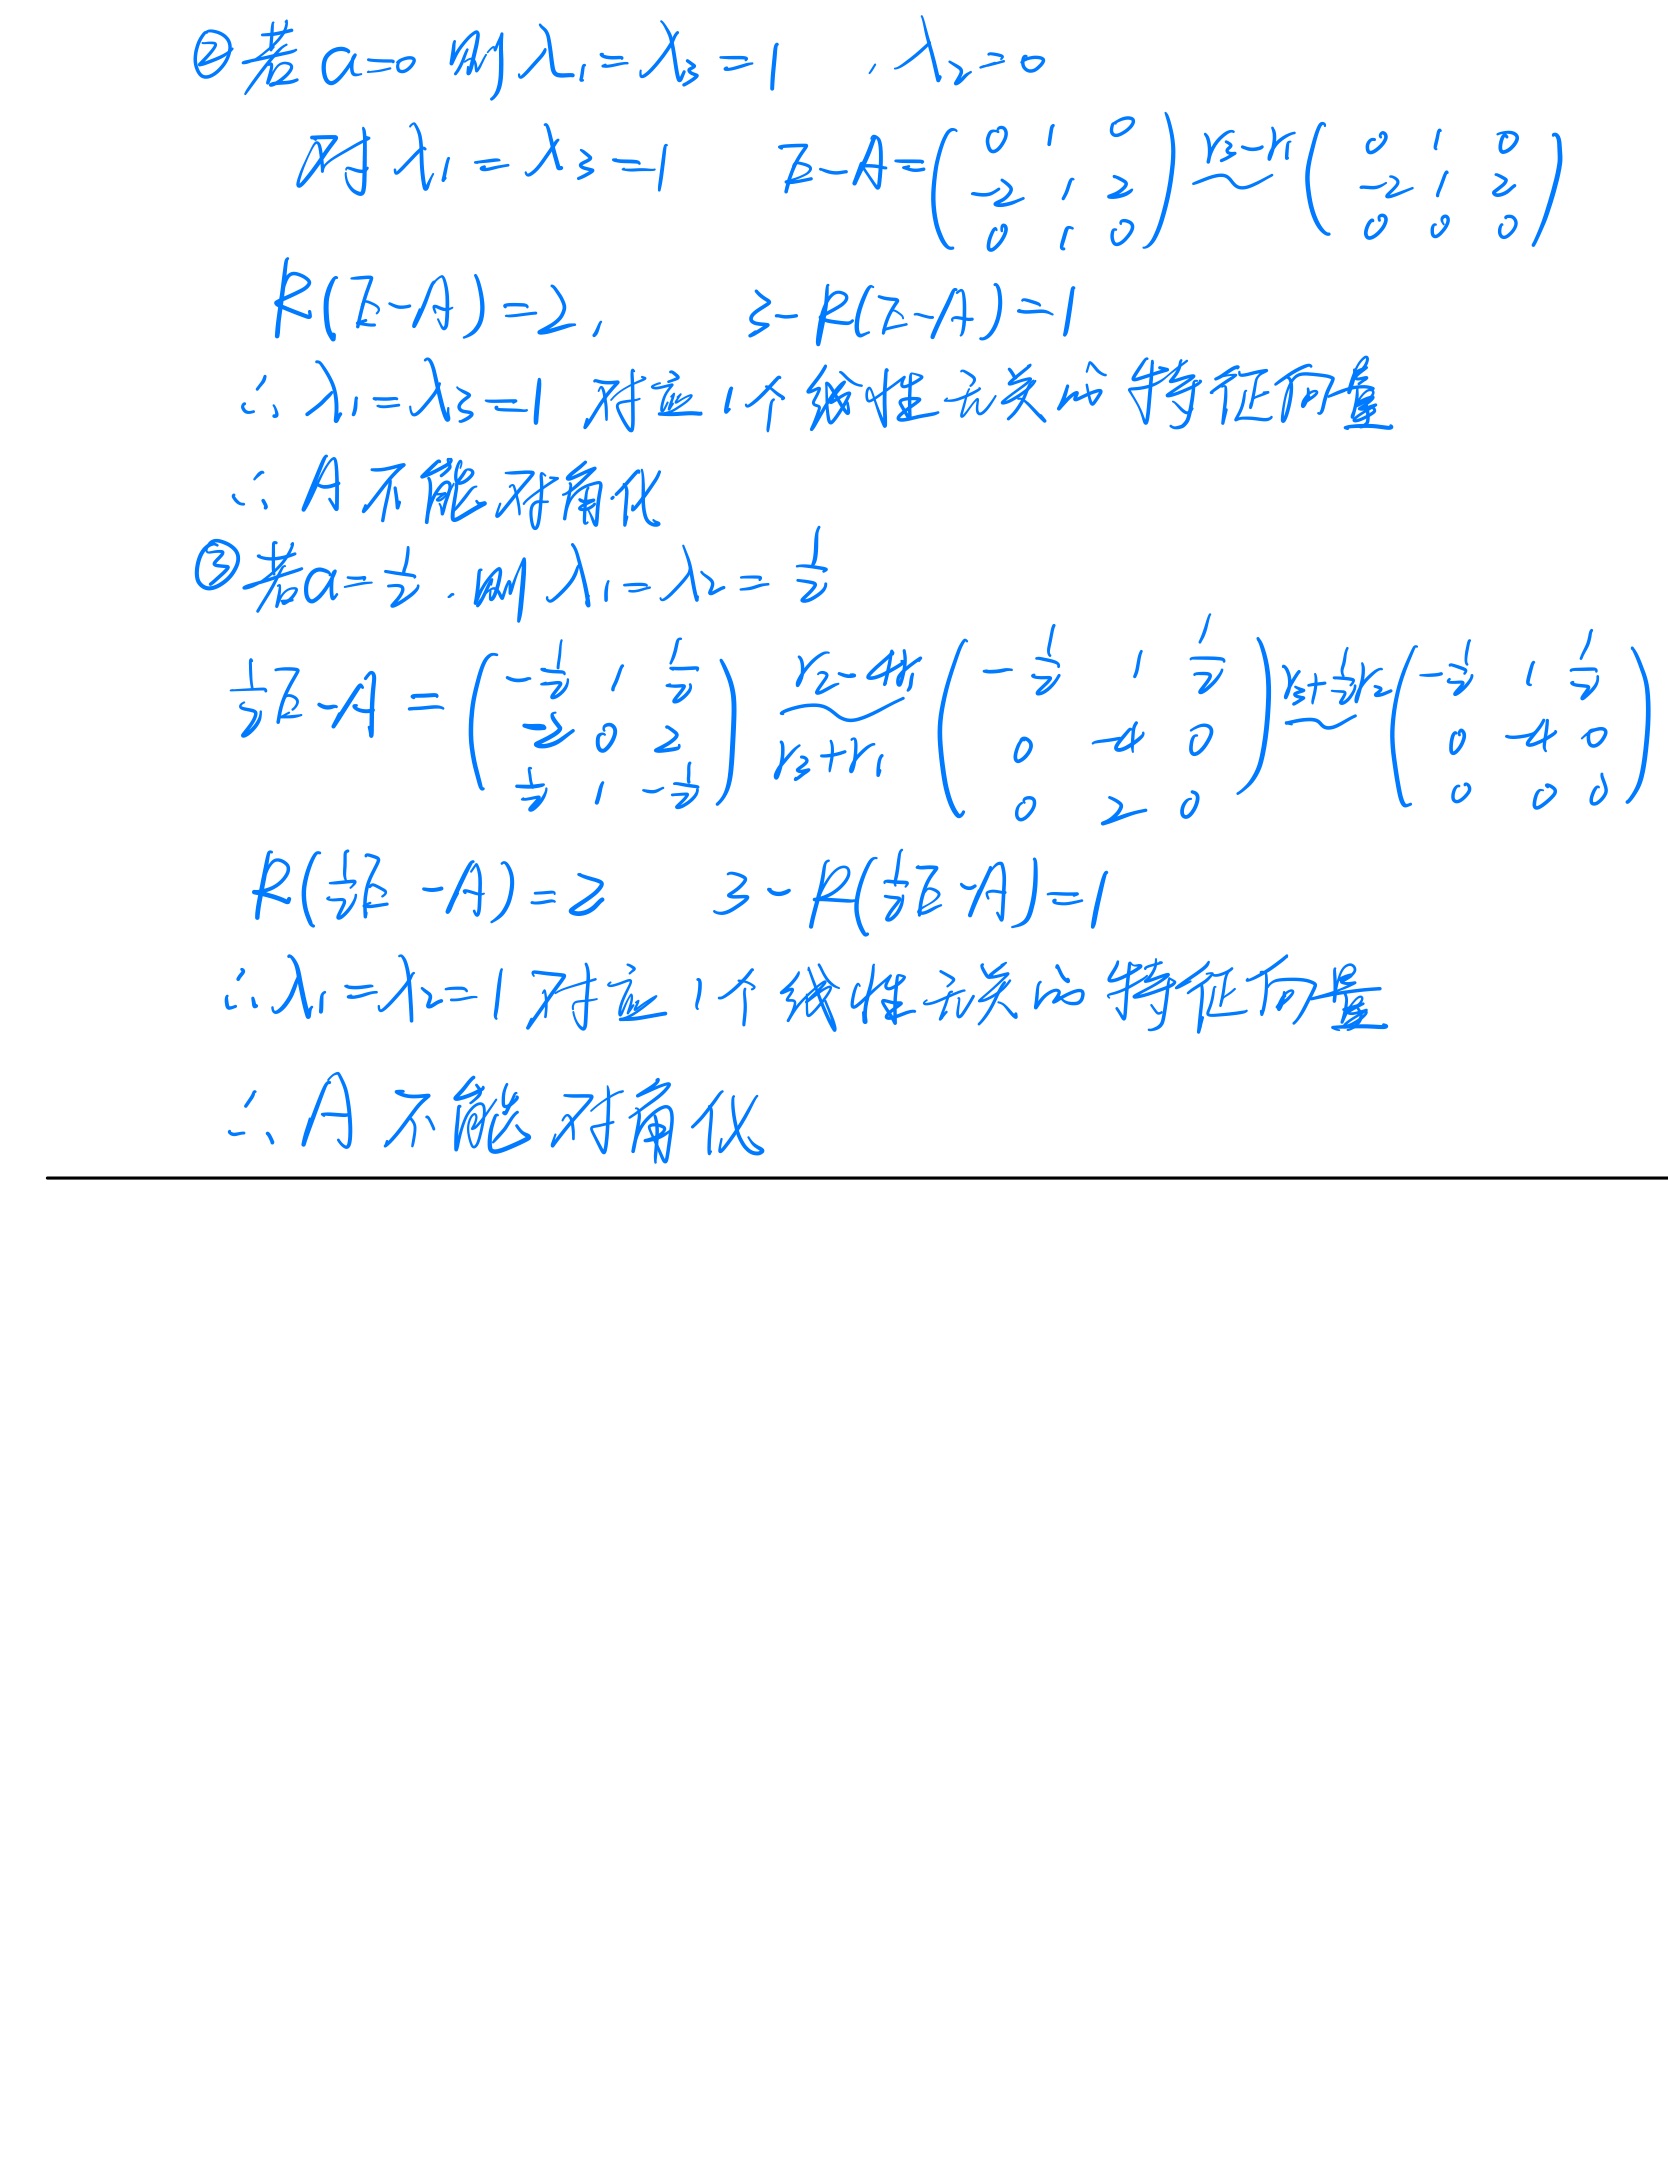 ②若 a=0 则 λ₁=λ₃=1 , λ₂=0
对 λ₁=λ₃=1 E-A=(0 1 0; -2 1 2; 0 1 0) r₃-r₁ ~ (0 1 0; -2 1 2; 0 0 0)
R(E-A)=2, 3-R(E-A)=1
∴ λ₁=λ₃=1 对应1个线性无关的特征向量
∴ A不能对角化
③若a=1/2 . 则 λ₁=λ₂=1/2
1/2E-A = (-1/2 1 1/2; -2 0 2; 1/2 1 -1/2) r₂-4r₁ ~ r₃+r₁ (-1/2 1 1/2; 0 -4 0; 0 2 0) r₃+1/2r₂ ~ (-1/2 1 1/2; 0 -4 0; 0 0 0)
R(1/2E-A)=2 3-R(1/2E-A)=1
∴ λ₁=λ₂=1 对应1个线性无关的特征向量
∴ A不能对角化